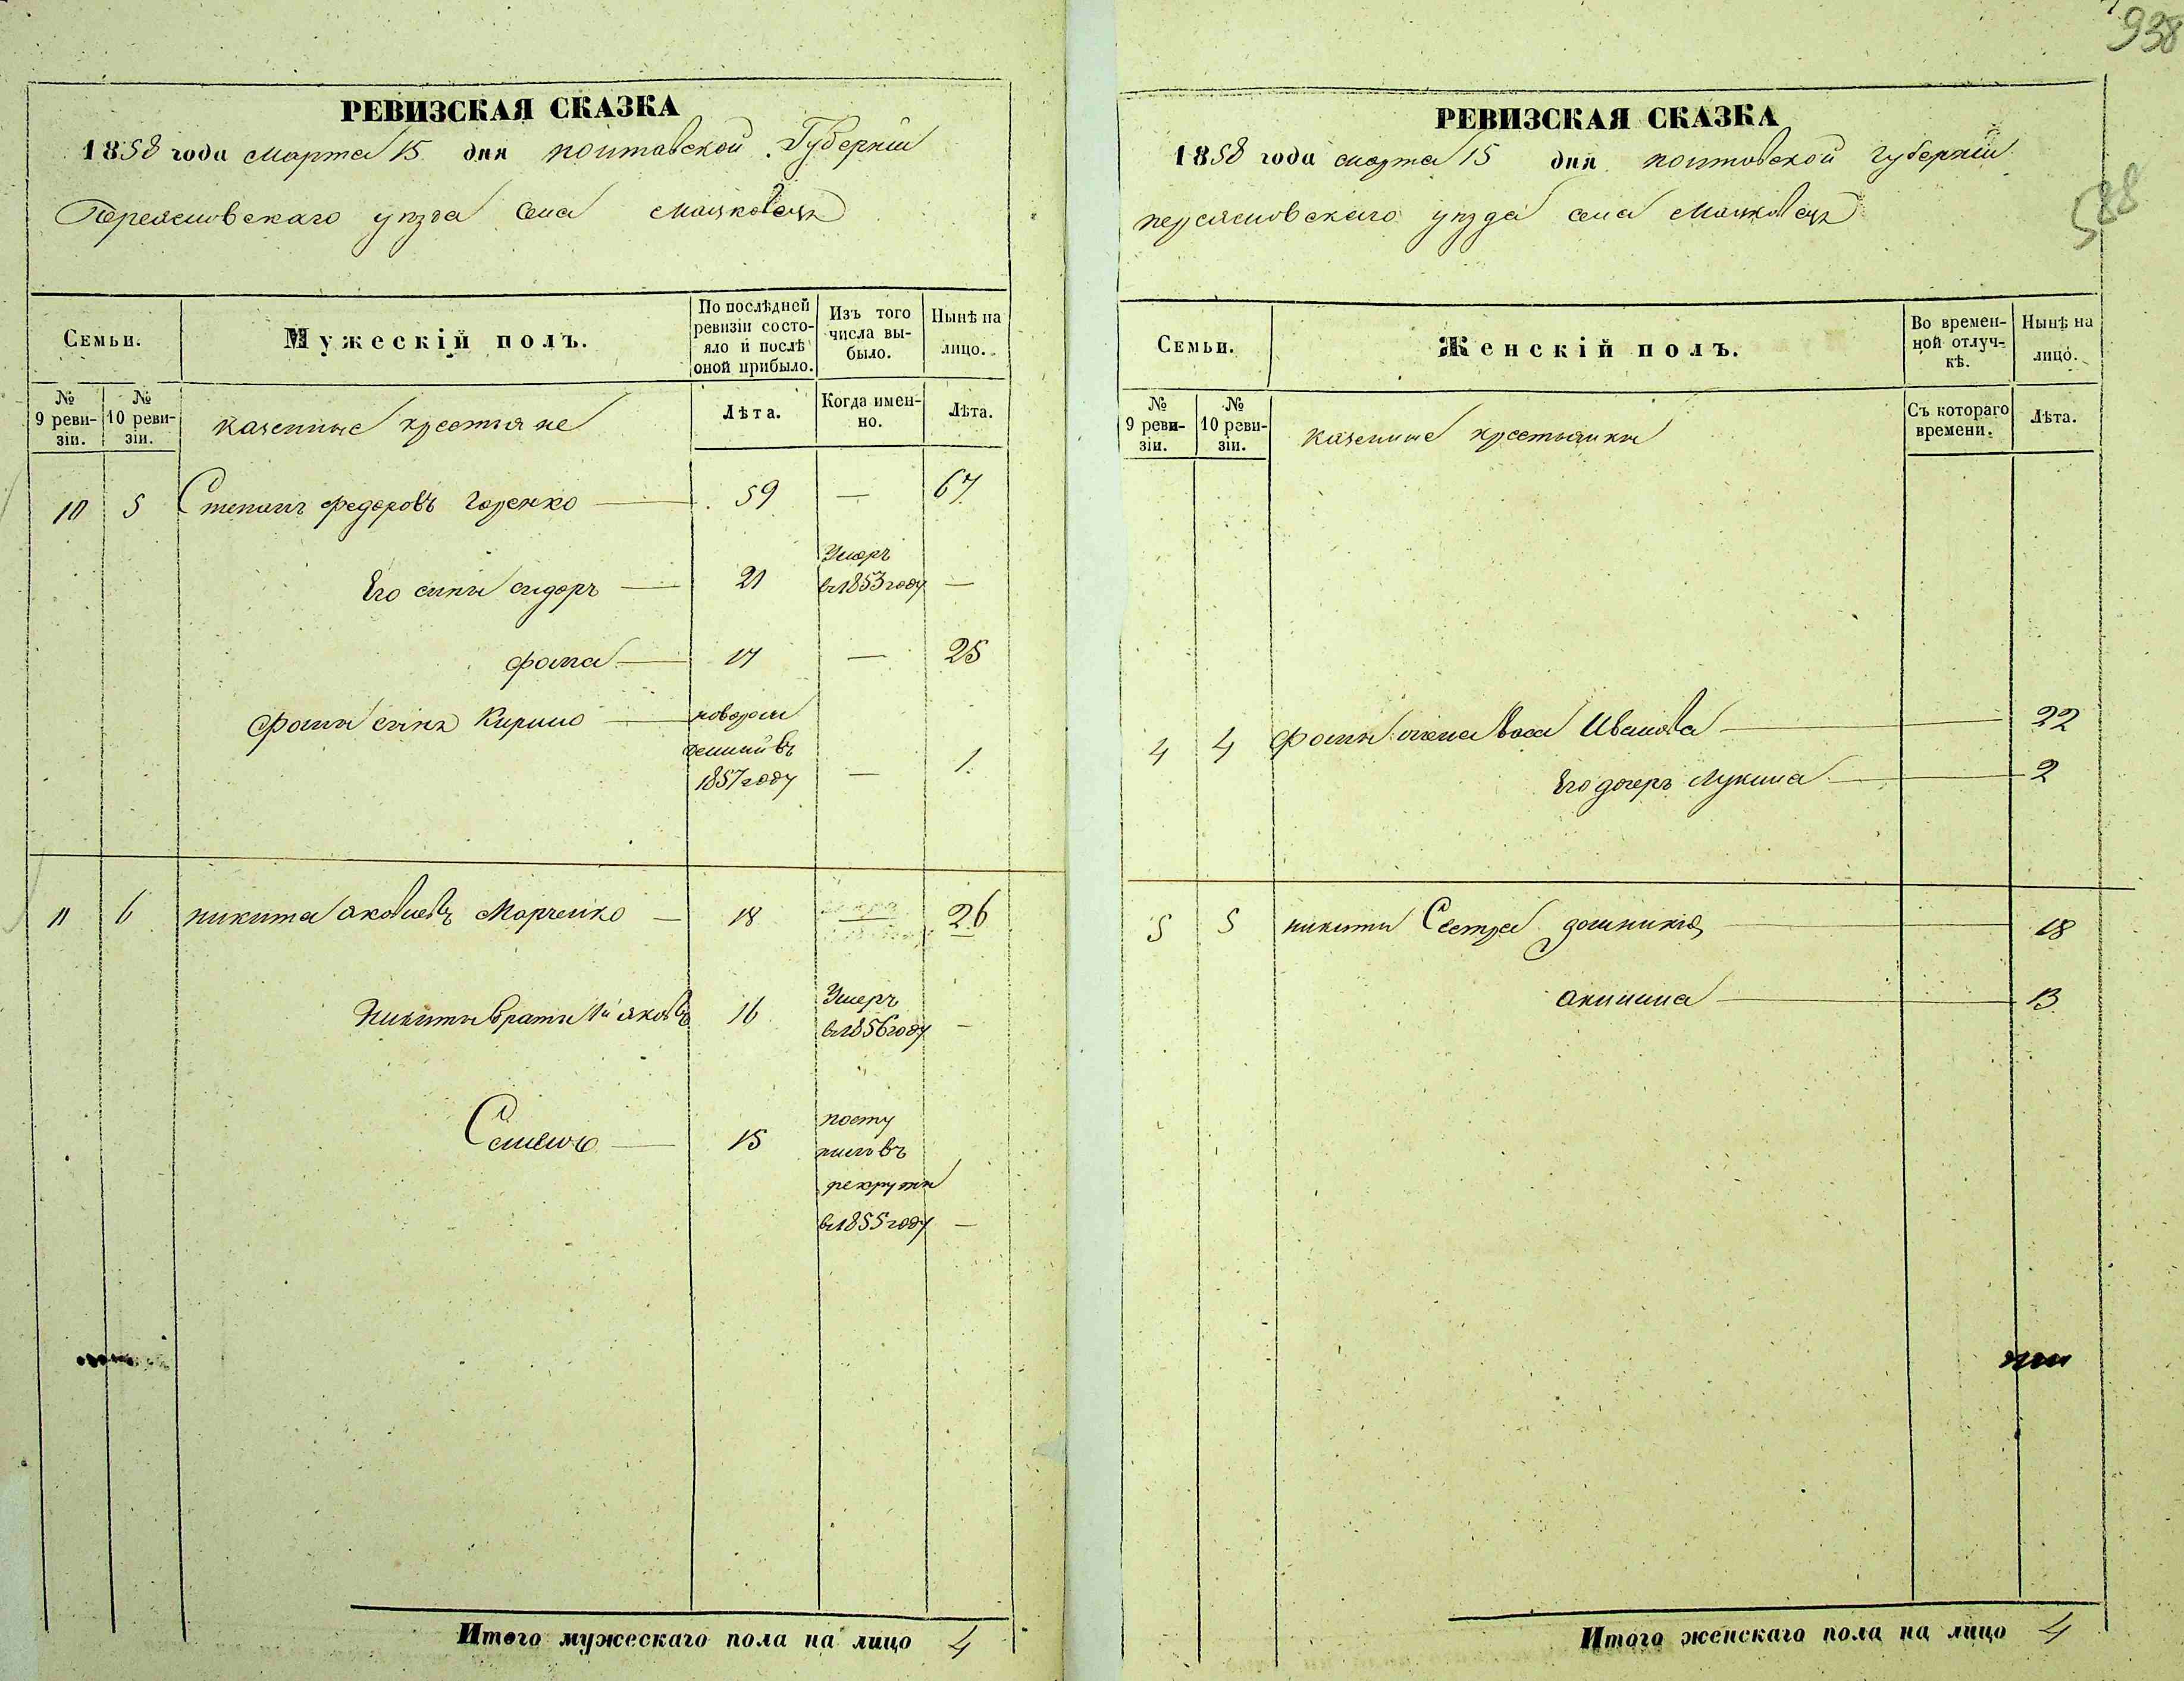 938
588
РЕВИЗСКАЯ СКАЗКА
1858 года марта 15 дня полтавской Губерніи
Переясловскаго уѣзда села
Семьи.
Мужескій полъ.
По послѣдней ревизіи состояло и послѣ оной прибыло.
Изъ того числа выбыло.
Нынѣ на лицо.
№ 9 ревизіи.
№ 10 ревизіи.
казенные крестьяне
Лѣта.
Когда именно.
Лѣта.
10 5 Степанъ федоровъ Горенко — 59 — 67
Его сины сидоръ — 21 Умеръ в 1853 году —
фома — 17 — 25
фомы синъ Кирило — новорожденый въ 1857 году — 1.
11 6 никита яковлевъ Марченко — 18 — 26
Никиты браты 1й яковъ 16 Умеръ в 1856 году —
Семенъ — 15 поступилъ въ рекруты в 1855 году —
Итого мужескаго пола на лицо 4
РЕВИЗСКАЯ СКАЗКА
1858 года марта 15 дня полтовской губерніи
переясловскаго уѣзда села
Семьи.
Женскій полъ.
Во временной отлучкѣ.
Нынѣ на лицо.
№ 9 ревизіи.
№ 10 ревизіи.
казенные крестьянки
Съ котораго времени.
Лѣта.
4 4 фомы жена Васа Иванова — 22
Его дочеръ Лукина — 2
5 5 никиты Сестра домникія — 18
акилина — 13
Итого женскаго пола на лицо 4